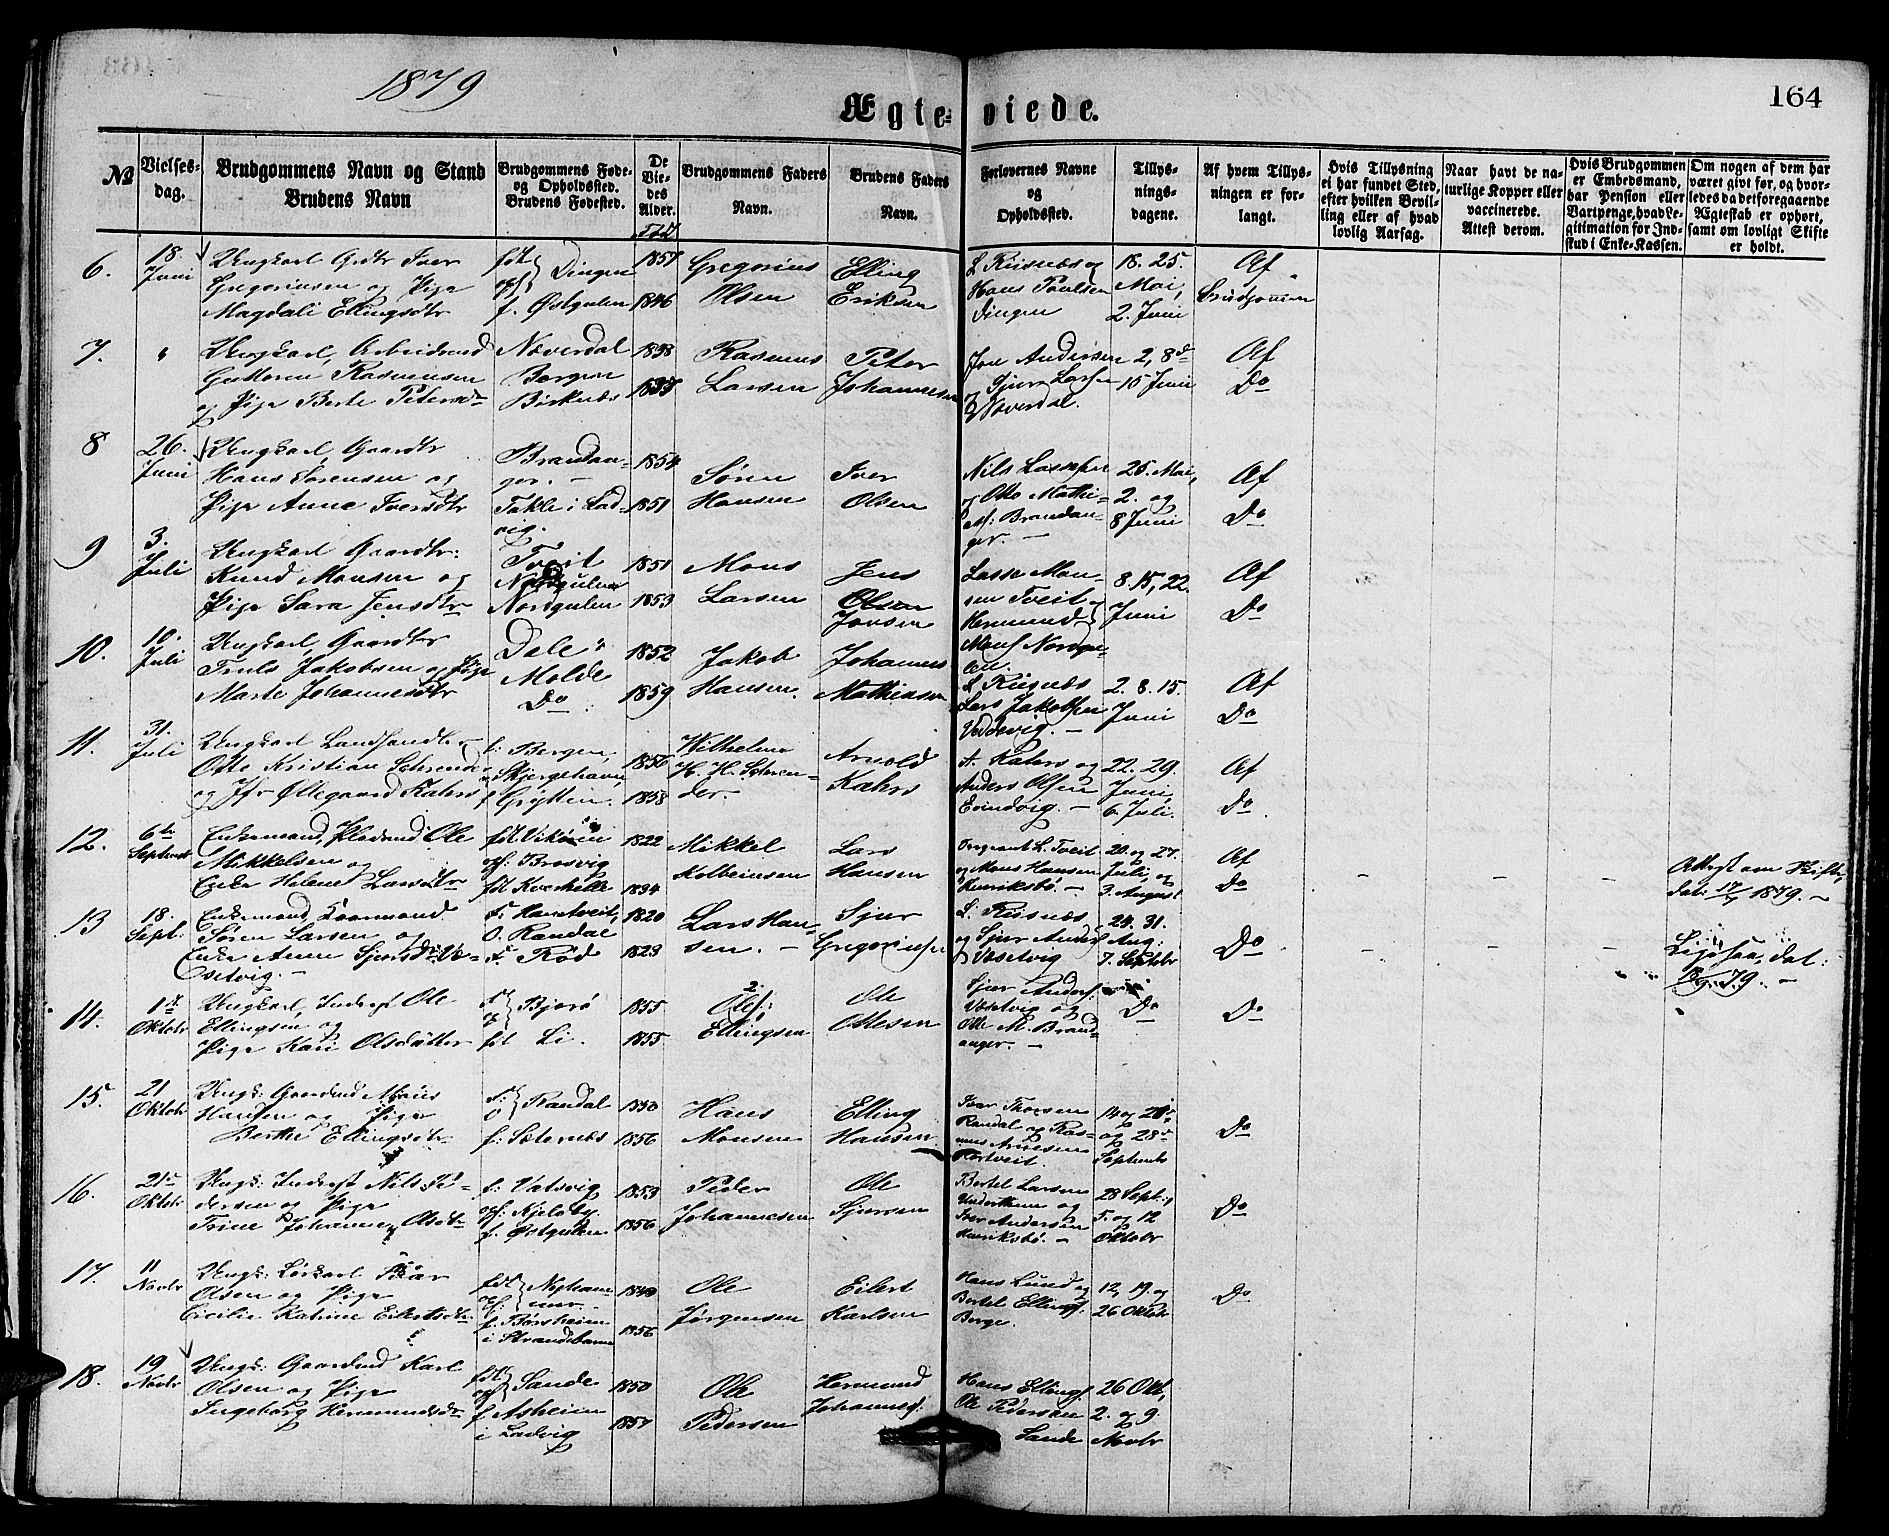 1879
Ægte-viede.
164
№
Vielses-dag.
Brudgommens Navn og Stand
Brudens Navn
Brudgommens Føde- og Opholdssted.
Brudens Fødested.
De Viedes Alder.
Brudgommens Faders Navn.
Brudens Faders Navn.
Forlovernes Navne og Opholdssted.
Tillysningsdagene.
Af hvem Tillysningen er forlangt.
Hvis Tillysning ei har fundet Sted, efter hvilken Bevilling eller af hvad lovlig Aarsag.
Naar havt de naturlige Kopper eller vaccinerede. Attest derom.
Hvis Brudgommen er Embedsmand, har Pension eller Vartpenge, hvad Legitimation for Indskud i Enke-Kassen.
Om nogen af dem har været givt før, og hvorledes da det foregaaende Ægteskab er ophørt, samt om lovligt Skifte er holdt.
6. 18. Juni
Ungkarl Grdbr Iver
Gregoriusen og Pige
Magdali Ellingsdtr
Dingen
f. Østgulen
1857
1846
Gregorius Olsen
Elling Eriksen
L Riisnæs og
Hans Poulsen
Dingen
18. 25. Mai, 2. Juni
Af Brudgommen
7. "
Ungkarl, Arbeidsmd
Guttorm Rasmussen
og Pige Berte Petersdtr
Næverdal
Bergen
Birknæs
1838
1835
Rasmus Larsen
Peter Johannesen
Jon Andersen
og Sjur Larsen
Næverdal.
2, 8de 15 Juni
Af Do
8 26. Juni
Ungkarl, Gaardbr
Hans Sørensen og
Pige Anne Iversdtr
Brandanger. -
Takle i Ladvig.
1854
1851
Søren Hansen
Iver Olsen
Nils Lassesen
og Otto Mathi-
es: Brandan-
ger. -
25. Mai, 2. og 8 Juni
Af Do
9 3. Juli
Ungkarl Gaardbr:
Knud Monsen og
Pige Sara Jensdtr
Tveit
Nordgulen
1851
1853
Mons Larsen
Jens Olsen Jonsen
Lasse Mon-
sen Tveit og
Hermund
Mons Nordgu-
len.
8. 15, 22. Juni
Af Do
10. 10. Juli
Ungkarl, Gaardbr
Truls Jakobsen og Pige
Marte Johannesdtr
Dale
Molde
Do
1852
1859
Jakob Hansen.
Johannes Mathiasen
L Riisnæs
Lars Jakobsen
Vadsvig. -
2. 8. 15. Juni
Af Do
11. 31. Juli
Ungkarl Landhandler
Otto Kristian Schrender
og Jfr Øllegaard Kahrs
f: Bergen,
Skjergehavn,
f Gryten.
1856
1858
Wilhelm H. H. Schrender.
Arnold Kahrs
A. Kahrs og
Anders Olsen
Evindvig. -
22. 29. Juni, 6. Juli.
Af Do
12. 6te Septembr
Enkemand, Pladsmd Ole
Mikkelsen og
Enke Helene Larsdtr
fdt Vikøren
opf: Brosvig
fdt Kverhelle
1822
1834
Mikkel Kolbeinsen
Lars Hansen
Sergeant L. Tveit
og Mons Hansen
Henriksbø. -
20. og 27. Juli, og 3. August
Af Do
Attest om Skifte, dat: 17/7 1879. -
13 18. Sept:
Enkemand Kaarmand
Søren Larsen og
Enke Anne Sjursdtr Væ-
setvig. -
f. Hantveit,
O. Randal
f. Rød
1820
1823
Lars Hansen. -
Sjur Gregoriusen
L: Riisnæs
og Sjur Anders:
Væsetvig
24. 31. Aug: 7. Septebr
Do
Ligesaa, dat: 79. -
14. 1st Oktobr
Ungkarl, Inderst Ole
Ellingsen og
Pige Kari Olsdatter
Bjorø
fdt Li.
1855
1855
Ole Ellingsen
Ole Ottesen
Sjur Anders:
Væsetvig og
Ole M. Brand-
anger. -
Do
Do
15. 21 Oktobr
Ungk: Gaardmd Mons
Hansen og Pige
Berthe Ellingsdtr
Randal
f: Sæternæs
1850
1856
Hans Monsen
Elling Hansen
Ivar Thoresen
Randal og Ras-
mus Arnesen
Hortveit.
14 og 21de og 28de Septembr
Do
16. 21de Oktobr
Ungk: Inderst Nils Pe-
dersen og Pige
Trine Johanne Olsdtr
f: Vatsvig
opf: Kjeløby.
f. Østgulen
1853
1856
Peder Johannesen
Ole Sjursen
Bertel Larsen
Underthun og
Iver Andersen
Henriksbø. -
28 Sept:, 5. og 12 Oktobr
Do
17. 11 Novbr
Ungk: Løskarl Peder
Olsen og Pige
Cicilie Katrine Eilertsdtr
fdt opf: Nyhammer.
f. Børsheim
i Strandebarm
1849
1856
Ole Jørgensen
Eilert Karlsen
Hans Lund og
Bertel Ellings:
Berge.
12, 19. og 26 Oktobr
Do
18. 19 Novbr
Ungk: Gaardmd Karl
Olsen og Pige
Ingeborg Hermundsdtr
Sande
f Asheim
i Ladvig
1850
1857
Ole Pedersen
Hermund Johannes:
Hans Ellings:
Ole Pedersen
Sande
26 Okt, 2. og 9. Novbr